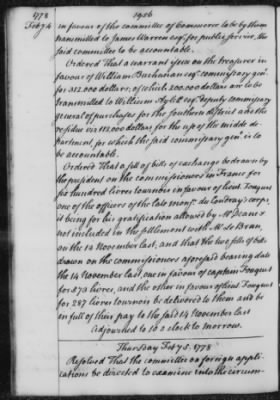 1778
1986
Feb. 4
in favour of the committee of Commerce to be by them
transmitted to James Warren esqr. for public service, the
said committee to be accountable.
Ordered That a warrant issue on the treasurer in
favour of William Buchanan esqr. commissary genl.
for 312,000 dollars, of which 200,000 dollars are to be
transmitted to William Aylett esqr. deputy commissary
general of purchases for the southern district and the
residue viz 112,000 dollars for the use of the middle de-
partment, for which the said commissary genl. is to
be accountable.
Ordered That a sett of bills of exchange be drawn by
the president on the commissioners in France for
six hundred livres tournois in favour of lieut Fouquet
one of the officers of the late monsr. du Coudray's corps,
it being for his gratification allowed by Mr Deane &
not included in the settlement with Mr Le Brun,
on the 14 November last, and that the two setts of bills
drawn on the commissioners aforesaid bearing date
the 14 November last, one in favour of captain Fouquet
for 873 livres, and the other in favour of lieut Fouquet
for 287 livres tournois be delivered to them and be
in full of their pay to the said 14 November last
Adjourned to 10 o'clock to morrow.
Thursday Feb. 5. 1778
Resolved That the committee on foreign appli-
cations be directed to examine into the circum-